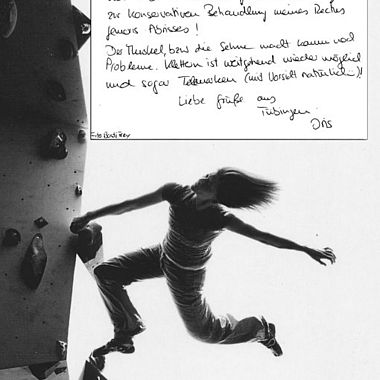 zur konservativen Behandlung meines Rectus
femoris Abrisses!
Der Muskel, bzw die Sehne macht kaum noch
Probleme. Klettern ist weitgehend wieder möglich
und sogar Telemarken (mit Vorsicht natürlich)!
Liebe Grüße aus
Tübingen
Iris